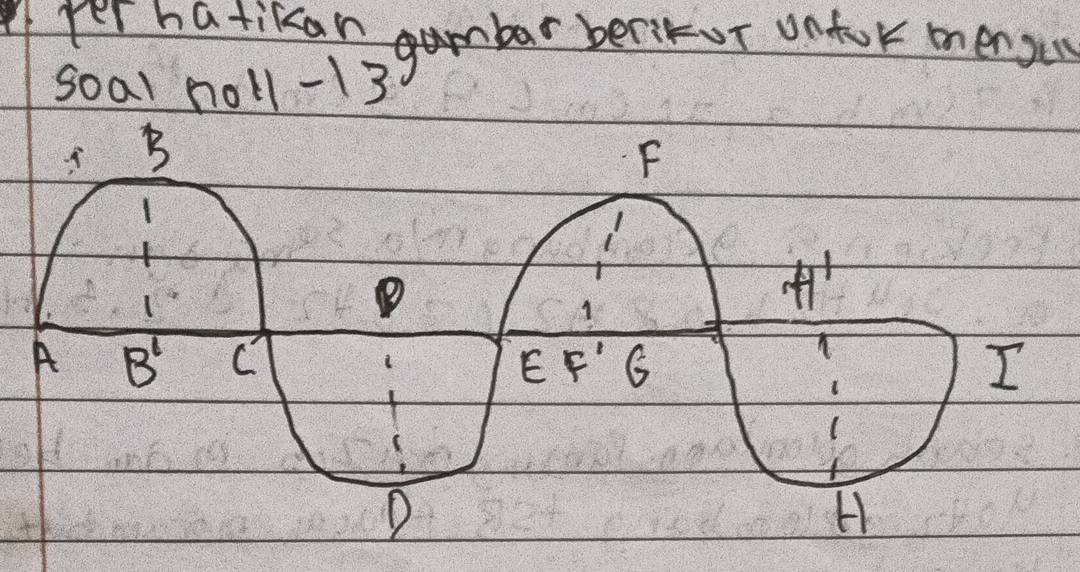 Perhatikan gambar berikut untuk
soal no 11 - 13
B
F
H'
A B' C E F' G I
D H